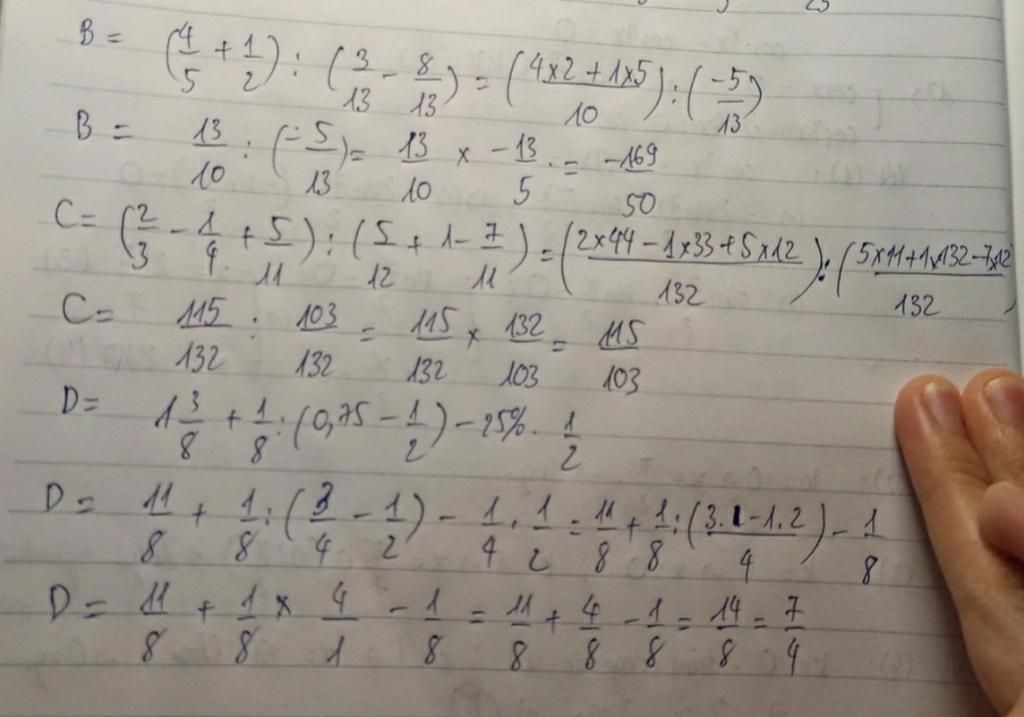 25
B = (4/5 + 1/2) : (3/13 - 8/13) = (4×2+1×5/10) : (-5/13)
B = 13/10 : (-5/13) = 13/10 × -13/5 = -169/50
C = (2/3 - 1/4 + 5/11) : (5/12 + 1 - 7/11) = (2×44-1×33+5×12/132) : (5×11+1×132-7×12/132)
C = 115/132 : 103/132 = 115/132 × 132/103 = 115/103
D = 1 3/8 + 1/8 : (0,75 - 1/2) - 25% . 1/2
D = 11/8 + 1/8 : (3/4 - 1/2) - 1/4 . 1/2 = 11/8 + 1/8 : (3.1-1.2/4) - 1/8
D = 11/8 + 1/8 × 4/1 - 1/8 = 11/8 + 4/8 - 1/8 = 14/8 = 7/4